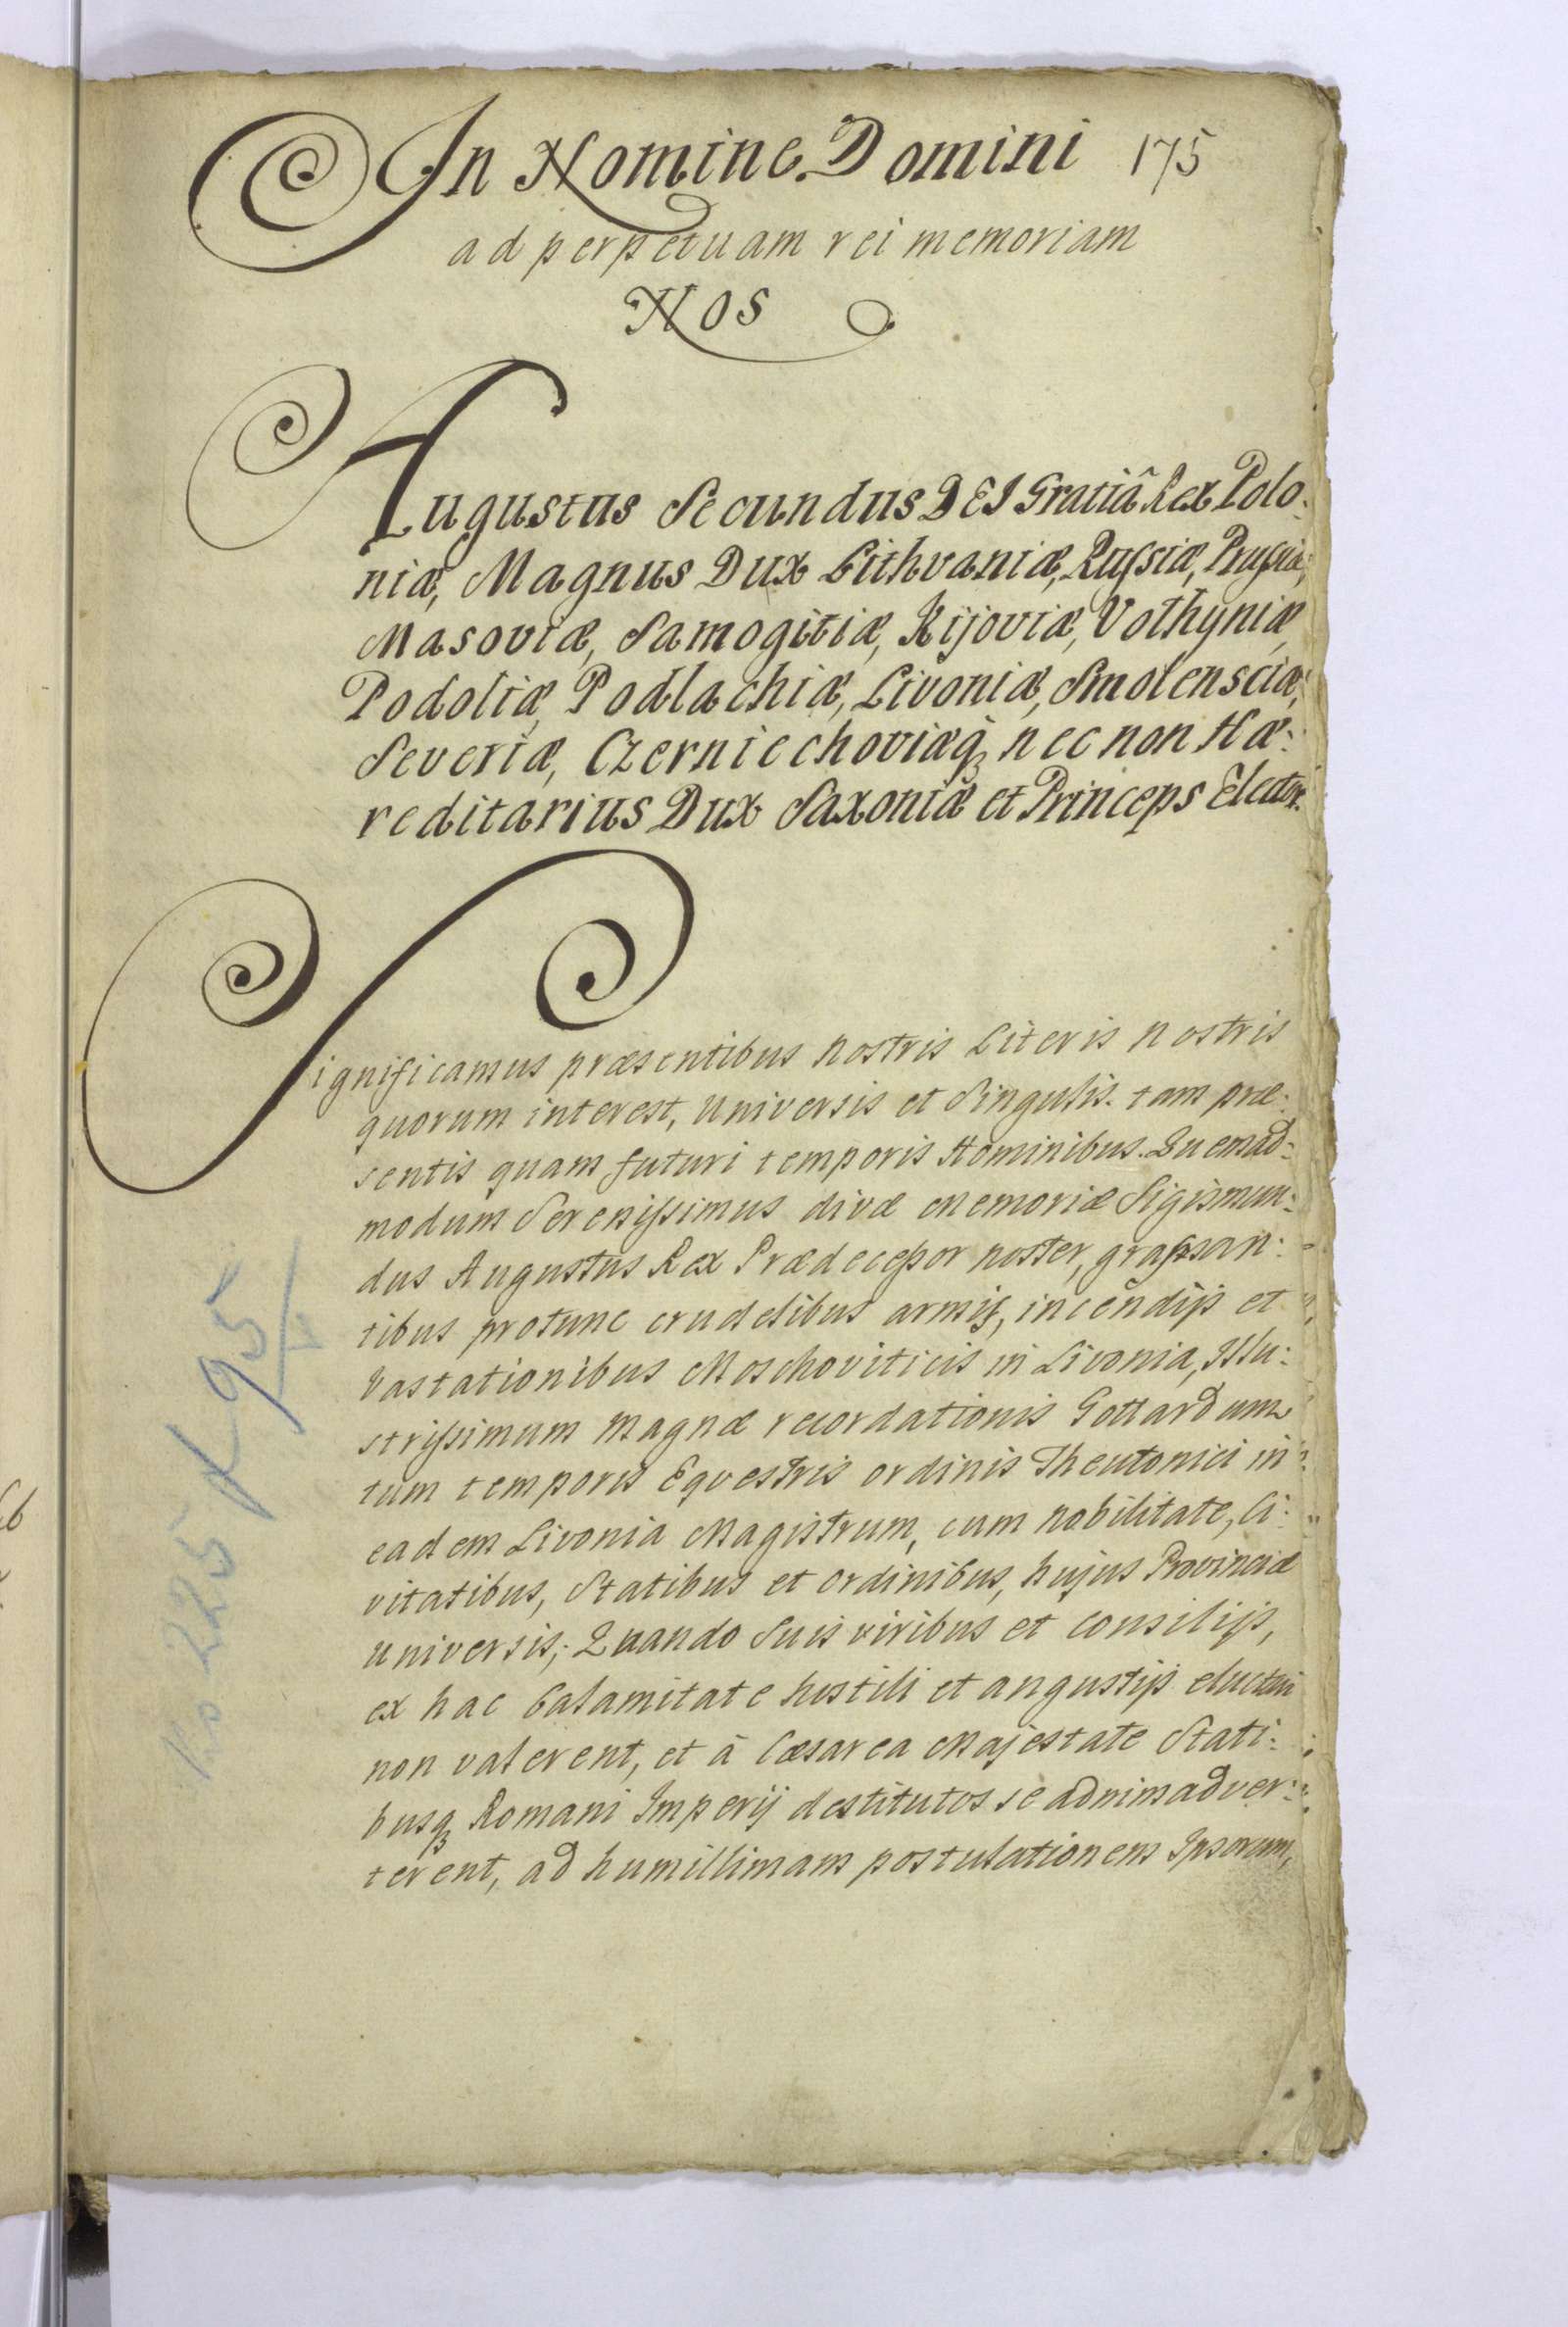 In Nomine Domini 175
ad perpetuam rei memoriam
Nos
Augustus Secundus DEI Gratiâ Rex Polo:
niæ, Magnus Dux Lithvaniæ, Russiæ, Prussiæ,
Masoviæ, Samogitiæ, Kijoviæ, Volhyniæ,
Podoliæ, Podlachiæ, Livoniæ, Smolensciæ,
Severiæ, Czerniechoviæq; nec non Hæ:
reditarius Dux Saxoniæ et Princeps Elector.
Significamus præsentibus nostris Literis nostris
quorum interest, Universis et Singulis. tam præ:
sentis quam futuri temporis Hominibus. Quemad:
modum Serenissimus divæ Memoriæ Sigismun:
dus Augustus Rex Prædecessor noster, grassan:
tibus protunc crudelibus armis, incendijs et
Vastationibus Moschoviticis in Livonia, Illu:
strissimum Magnæ recordationis Gottardum
tum temporis Equestris ordinis Theutonici in
eadem Livonia Magistrum, cum Nobilitate, Ci:
vitatibus, Statibus et ordinibus, hujus Provinciæ
Universis; Quando Suis viribus et Consilijs,
ex hac Calamitate hostili et angustijs eluctari
non valerent, et à Cæsarea Majestate Stati:
busq; Romani Imperij destitutos se adnimadver:
terent, ad humillimam postulationem Ipsorum,
No 225